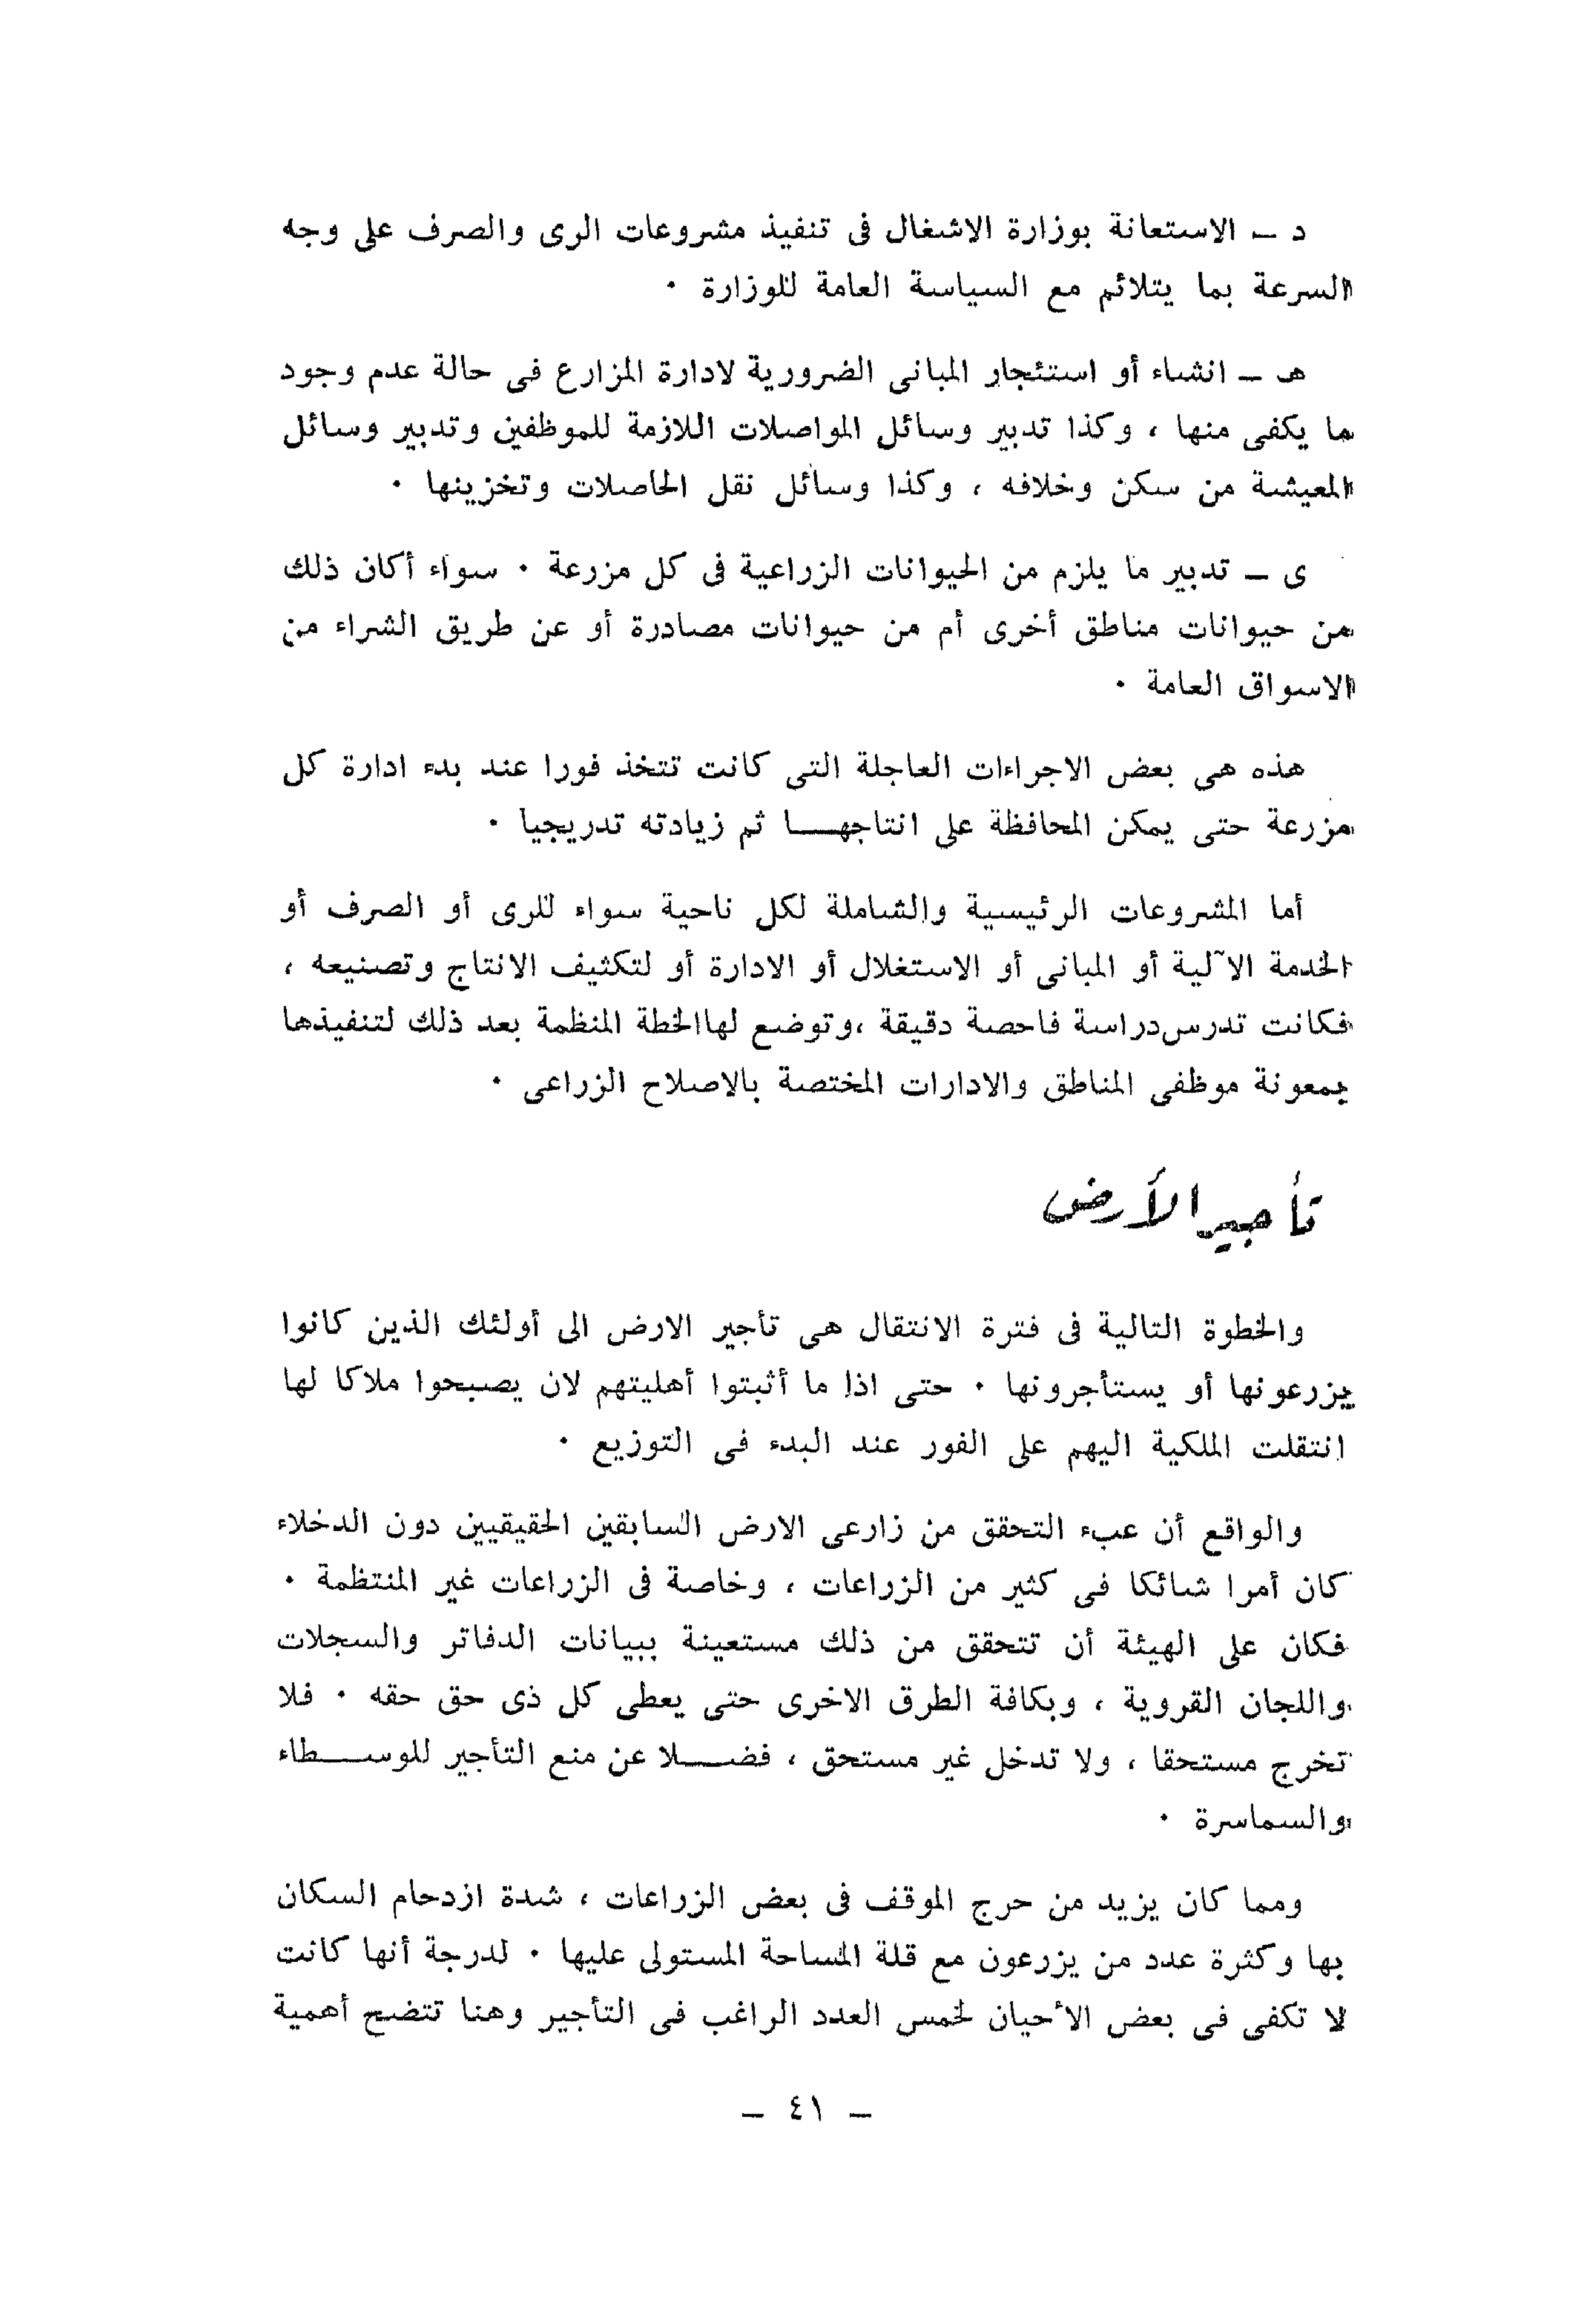 د ــ الاستعانة بوزارة الاشغال فى تنفيذ مشروعات الرى والصرف على وجه
السرعة بما يتلائم مع السياسة العامة للوزارة ٠
هـ ــ انشاء أو استئجار المبانى الضرورية لادارة المزارع فى حالة عدم وجود
ما يكفى منها ، وكذا تدبير وسائل المواصلات اللازمة للموظفين وتدبير وسائل
المعيشة من سكن وخلافه ، وكذا وسائل نقل الحاصلات وتخزينها ٠
ى ــ تدبير ما يلزم من الحيوانات الزراعية فى كل مزرعة ٠ سواء أكان ذلك
من حيوانات مناطق أخرى أم من حيوانات مصادرة أو عن طريق الشراء من
الاسواق العامة ٠
هذه هى بعض الاجراءات العاجلة التى كانت تتخذ فورا عند بدء ادارة كل
مزرعة حتى يمكن المحافظة على انتاجهـــا ثم زيادته تدريجيا ٠
أما المشروعات الرئيسية والشاملة لكل ناحية سواء للرى أو الصرف أو
الخدمة الآلية أو المبانى أو الاستغلال أو الادارة أو لتكثيف الانتاج وتصنيعه ،
فكانت تدرس دراسة فاحصة دقيقة ، وتوضع لها الخطة المنظمة بعد ذلك لتنفيذها
بمعونة موظفى المناطق والادارات المختصة بالاصلاح الزراعى ٠
تأجير الأرض
والخطوة التالية فى فترة الانتقال هى تأجير الارض الى أولئك الذين كانوا
يزرعونها أو يستأجرونها ٠ حتى اذا ما أثبتوا أهليتهم لان يصبحوا ملاكا لها
انتقلت الملكية اليهم على الفور عند البدء فى التوزيع ٠
والواقع أن عبء التحقق من زارعى الارض السابقين الحقيقيين دون الدخلاء
كان أمرا شائكا فى كثير من الزراعات ، وخاصة فى الزراعات غير المنتظمة ٠
فكان على الهيئة أن تتحقق من ذلك مستعينة ببيانات الدفاتر والسجلات
واللجان القروية ، وبكافة الطرق الاخرى حتى يعطى كل ذى حق حقه ٠ فلا
تخرج مستحقا ، ولا تدخل غير مستحق ، فضـــلا عن منع التأجير للوســـطاء
والسماسرة ٠
ومما كان يزيد من حرج الموقف فى بعض الزراعات ، شدة ازدحام السكان
بها وكثرة عدد من يزرعون مع قلة المساحة المستولى عليها ٠ لدرجة أنها كانت
لا تكفى فى بعض الأحيان لخمس العدد الراغب فى التأجير وهنا تتضح أهمية
ــ ٤١ ــ